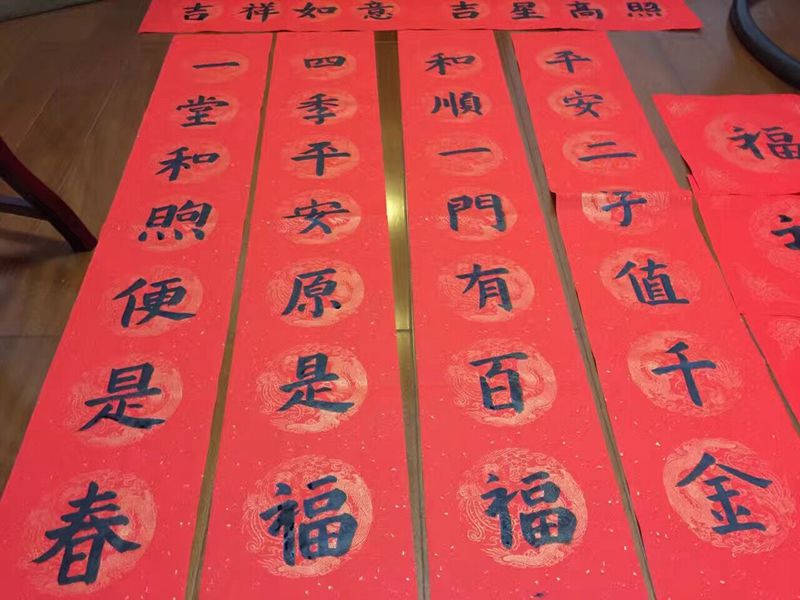 吉祥如意 吉星高照
一堂和煦便是春
四季平安原是福
和順一門有百福
平安二子值千金
福